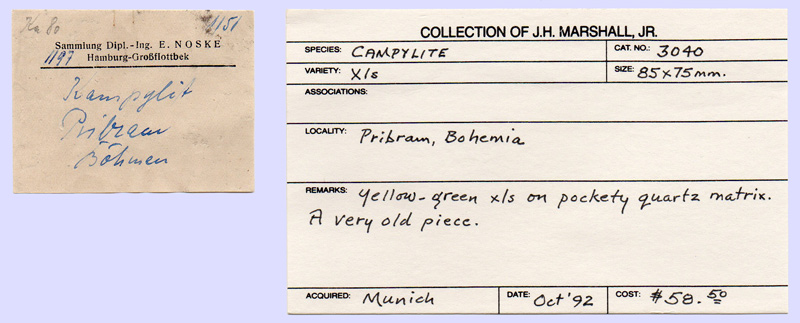 Ka 80
1151
Sammlung Dipl.-Ing. E. NOSKE
1197 Hamburg-Großflottbek
Kampylit
Pribram
Böhmen
COLLECTION OF J.H. MARSHALL, JR.
SPECIES: CAMPYLITE CAT. NO.: 3040
VARIETY: Xls SIZE: 85x75mm.
ASSOCIATIONS:
LOCALITY: Pribram, Bohemia
REMARKS: Yellow-green xls on pockety quartz matrix.
A very old piece.
ACQUIRED: Munich DATE: Oct '92 COST: $58.50